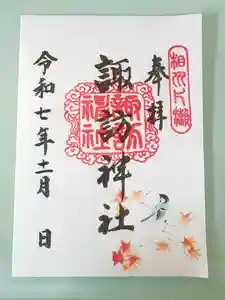 奉拝
諏訪神社
諏訪
神社
令和七年十一月 日